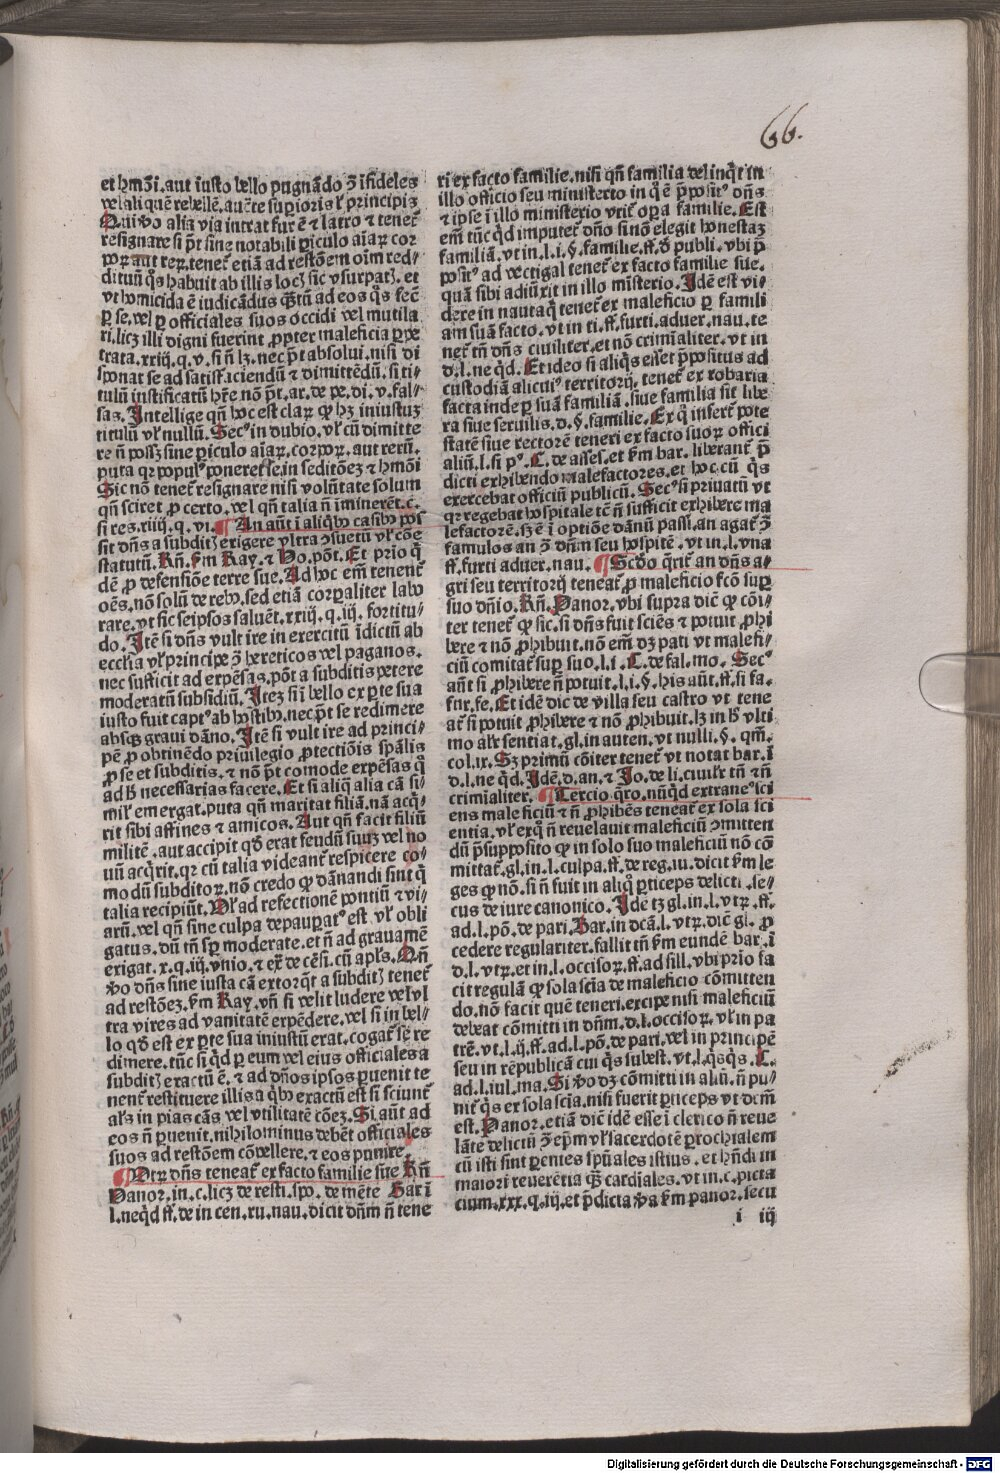 66.
et hmõi. aut iusto bello pugnãdo ɔ̃ ifideles
vel aliquẽ rebellẽ. auc̃te superioris ł principis
Qui vo alia via intrat fur ẽ ⁊ latro ⁊ tenet᷑
resignare si p̃t sine notabili ꝑiculo aĩaꝝ cor
poꝝ aut reꝝ. tenet᷑ etiã ad restõem oĩm red-
dituũ qͥs habuit ab illis locꝭ sic vsurpatꝭ. et
vt homicida ẽ iudicãdus ꝙ̃tũ ad eos qͥs fecꝭ
ꝑ se. vel ꝑ officiales suos occidi vel mutila
ri. licꝫ illi digni fuerint ꝓpter maleficia ꝑpe
trata. xxiij. q. v. si ñ lꝫ. nec p̃t absolui. nisi di
sponat se ad satisfaciendũ ⁊ dimittẽdũ. si ti-
tulũ iustificatũ hr̃e nõ p̃t. ar. de pe. di. v. fal-
sas. Intellige qñ hoc est claꝝ ꝙ hꝫ iniustuꝫ
titulũ vł nullũ. Secꝰ in dubio. vł cũ dimitte
re ñ possꝫ sine ꝑiculo aĩaꝝ. corpoꝝ. aut rerũ.
puta qꝛ populꝰ poneret se in seditõeꝫ ⁊ hmõi
Sic nõ tenet᷑ resignare nisi volũtate solum
qñ sciret ꝓ certo. vel qñ talia ñ iminerẽt. c.
si res. xiiij. q. vi. ¶ An aũt i aliqͥbꝰ casibꝰ pos
sit dñs a subditꝭ exigere vltra ɔsuetũ vł cõe
statutũ. Rñ. ẜm Ray. ⁊ Ho. põt. Et prio qͥ
dẽ ꝓ defensiõe terre sue. Ad hoc em̃ tenent᷑
oẽs. nõ solũ de rebꝰ. sed etiã corꝑaliter labo
rare. vt sic seipsos saluẽt. xxiij. q. iij. fortitu-
do. Itẽ si dñs vult ire in exercitũ idictũ ab
ecclia vł principe ɔ̃ hereticos vel paganos.
nec sufficit ad expẽsas. põt a subditis petere
moderatũ subsidiũ. Iteꝫ si i bello ex ꝑte sua
iusto fuit captꝰ ab hostibꝰ. nec p̃t se redimere
absqꝫ graui dãno. Itẽ si vult ire ad princi-
pẽ ꝓ obtinẽdo priuilegio ꝓtectiõis spãlis
ꝓ se et subditis. ⁊ nõ p̃t comode expẽsas qͥ
ad h̃ necessarias facere. Et si aliqͣ alia cã si-
mił emergat. puta qñ maritat filiã. nã acqͥ-
rit sibi affines ⁊ amicos. Aut qñ facit filiũ
militẽ. aut accipit qd̃ erat feudũ suuꝫ vel no
uũ acqͥrit. qꝛ cũ talia videant᷑ respicere co-
modũ subditoꝝ. nõ credo ꝙ dãnandi sint qͥ
talia recipiũt. Vł ad refectionẽ pontiũ ⁊ vi-
arũ. vel qñ sine culpa depauꝑatꝰ est. vł obli
gatus. dũ tñ sꝑ moderate. et ñ ad grauamẽ
exigat. x. q. iij. vnio. ⁊ ex̃ de cẽsi. cũ apłs. Qñ
vo dñs sine iusta cã extorqͥt a subditꝭ tenet᷑
ad restõeꝫ. ẜm Ray. vñ si velit ludere vel vl
tra vires ad vanitatẽ expẽdere. vel si in bel-
lo qd̃ est ex ꝑte sua iniustũ erat. cogat᷑ se re
dimere. tũc si qͥd ꝑ eum vel eius officiales a
subditꝭ exactũ ẽ. ⁊ ad dños ipsos ꝑuenit te
nent᷑ restituere illis a qͥbꝰ exactũ est si sciunt᷑
ałs in pias cãs vel vtilitatẽ cõeꝫ. Si aũt ad
eos ñ ꝑuenit. nihilominus debẽt officiales
suos ad restõem cõpellere. ⁊ eos punire.
¶ Vtꝝ dñs teneat᷑ ex facto familie sue Rñ
Panor. in. c. licꝫ de resti. spo. de mẽte Bar i
l. neqͥd ff. de in cen. ru. nau. dicit dñm ñ tene
ri ex facto familie. nisi qñ familia delinqͥt in
illo officio seu ministerio in qͦ ẽ p̃positꝰ dñs
⁊ ipse i illo ministerio vtit᷑ oꝑa familie. Est
em̃ tũc qͥd imputet᷑ dño si nõ elegit honestaꝫ
familiã. vt in. l. i. §. familie. ff. d̃ publi. vbi p̃
positꝰ ad vectigal tenet᷑ ex facto familie sue.
quã sibi adiũxit in illo misterio. Idẽ est vi-
dere in nauta qͥ tenet᷑ ex maleficio ꝑ famili
am suã facto. vt in ti. ff. furti. aduer. nau. te
net᷑ tñ dñs ciuiliter. et nõ crimĩaliter. vt in
d. l. ne qͥd. Et ideo si aliqͥs esset p̃positus ad
custodiã alicuiꝰ territorij. tenet᷑ ex robaria
facta inde ꝑ suã familiã. siue familia sit libe
ra siue seruilis. d. §. familie. Ex qͦ infert᷑ pote
statẽ siue rectorẽ teneri ex facto suoꝝ offici
aliũ. l. si pꝰ. C. de asses. et ẜm bar. liberant᷑ p̃
dicti exhibendo malefactores. et hoc cũ qͥs
exercebat officiũ publicũ. Secꝰ si priuatũ vt
qꝛ regebat hospitale tẽ ñ sufficit exhibere ma
lefactorẽ. sꝫ ẽ i optiõe dãnũ passi. an agat ɔ̃
famulos an ɔ̃ dñm seu hospitẽ. vt in. l. vna
ff. furti aduer. nau. ¶ Scd̃o qͥrit᷑ an dñs a-
gri seu territorij teneat᷑ ꝓ maleficio fcõ suꝑ
suo dñio. Rñ. Panor. vbi supra dic̃ ꝙ cõi-
ter tenet᷑ ꝙ sic. si dñs fuit sciẽs ⁊ potuit ꝓhi
bere ⁊ nõ ꝓhibuit. nõ em̃ dꝫ pati vt malefi-
ciũ comitat᷑ suꝑ suo. l. i. C. de fal. mo. Secꝰ
aũt si ꝓhibere ñ potuit. l. i. §. his aũt. ff. si fa.
fur. fe. Et idẽ dic de villa seu castro vt tene
at᷑ si potuit ꝓhibere ⁊ nõ ꝓhibuit. lꝫ in h̃ vlti
mo alr̃ sentiat. gl. in auten. vt nulli. §. qm̃.
col. ix. Sꝫ primũ cõiter tenet᷑ vt notat bar. i
d. l. ne qͥd. Idẽ. d. an. ⁊ Jo. de li. ciuilr̃ tñ ⁊ ñ
crimĩaliter. ¶ Tercio qͥro. nũqͥd extraneꝰ sci
ens maleficiũ ⁊ ñ ꝓhibẽs teneat᷑ ex sola sci
entia. vł ex qͦ ñ reuelauit maleficiũ ɔmitten
dũ p̃supposito ꝙ in solo suo maleficiũ nõ cõ
mittat᷑. gl. in. l. culpa. ff. de reg. iu. dicit ẜm le
ges ꝙ nõ. si ñ fuit in aliqͦ ꝑticeps delicti. se-
cus de iure canonico. Idẽ tꝫ gl. in. l. vtꝝ. ff.
ad. l. põ. de pari. Bar. in dcã. l. vtꝝ. dic̃ gl. ꝓ
cedere regulariter. fallit tñ ẜm eundẽ bar. i
d. l. vtꝝ. et in. l. occisoꝝ. ff. ad sill. vbi prio fa
cit regulã ꝙ sola scia de maleficio cõmitten
do. nõ facit quẽ teneri. excipe nisi maleficiũ
debeat cõmitti in dñm. d. l. occisoꝝ. vł in pa
trẽ. vt. l. ij. ff. ad. l. põ. de pari. vel in principẽ
seu in rẽpublicã cui qͥs subest. vt. l. qͥsqͥs. C.
ad. l. iul. ma. Si vo dꝫ cõmitti in aliũ. ñ pu-
nit᷑ qͥs ex sola scia. nisi fuerit ꝑticeps vt dcm̃
est. Panor. etiã dic̃ idẽ esse i clerico ñ reue
lãte deliciũ ɔ̃ ep̃m vł sacerdotẽ ꝑochialem
cũ isti sint ꝑentes sp̃uales istius. et hñdi in
maiori reuerẽtia ꝙ̃ cardiales. vt in. c. picta
cium. xxx. q. iij. et p̃dicta va ẜm panor. secu
i iij
Digitalisierung gefördert durch die Deutsche Forschungsgemeinschaft - DFG